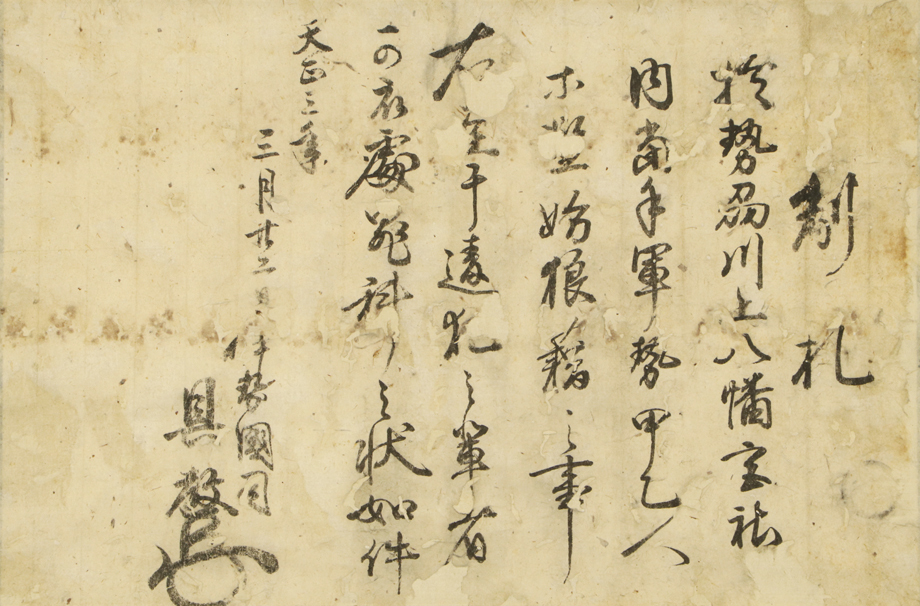 制札
於勢刕川上八幡宮社
内當手軍勢甲乙人
等濫妨狼藉之事
右至于違犯之輩者
可被處罪科之状如件
天正三年
三月廿二日 伊勢國司
具教